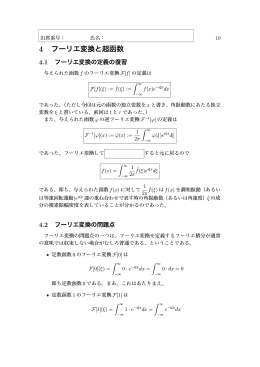 出席番号： 氏名： 19
4 フーリエ変換と超函数
4.1 フーリエ変換の定義の復習
与えられた函数 f のフーリエ変換 F[f] の定義は
F[f](ξ) := f̂(ξ) := ∫_{-∞}^{∞} f(x)e^{-iξx}dx
であった。（ただし今回は元の函数の独立変数を x と書き、角振動数にあたる独立
変数を ξ と書いている。前回は t と τ であった。）
また、与えられた函数 φ の逆フーリエ変換 F^{-1}[φ] の定義は
F^{-1}[φ](x) := φ̌(x) := \frac{1}{2π} ∫_{-∞}^{∞} φ(ξ)e^{ixξ}dξ
であった。フーリエ変換して すると元に戻るので
f(x) = ∫_{-∞}^{∞} \frac{1}{2π} f̂(ξ)e^{ixξ}dξ
である。即ち、与えられた函数 f(x) に対して \frac{1}{2π} f̂(ξ) は f(x) を調和振動（あるい
は等速回転運動）e^{iξx} 達の重ね合わせで表す時の角振動数（あるいは角速度）ξ の成
分の複素振幅密度を表していることが分かるのであった。
4.2 フーリエ変換の問題点
フーリエ変換の問題点の一つは、フーリエ変換を定義するフーリエ積分が通常
の意味では収束しない場合がむしろ普通である、ということである。
• 定数函数 0 のフーリエ変換 F[0] は
F[0](ξ) = ∫_{-∞}^{∞} 0 · e^{-iξx}dx = ∫_{-∞}^{∞} 0 · dx = 0
即ち定数函数 0 である。まあ、これはあたりまえ。
• 定数函数 1 のフーリエ変換 F[1] は
F[1](ξ) = ∫_{-∞}^{∞} 1 · e^{-iξx}dx = ∫_{-∞}^{∞} e^{-iξx}dx